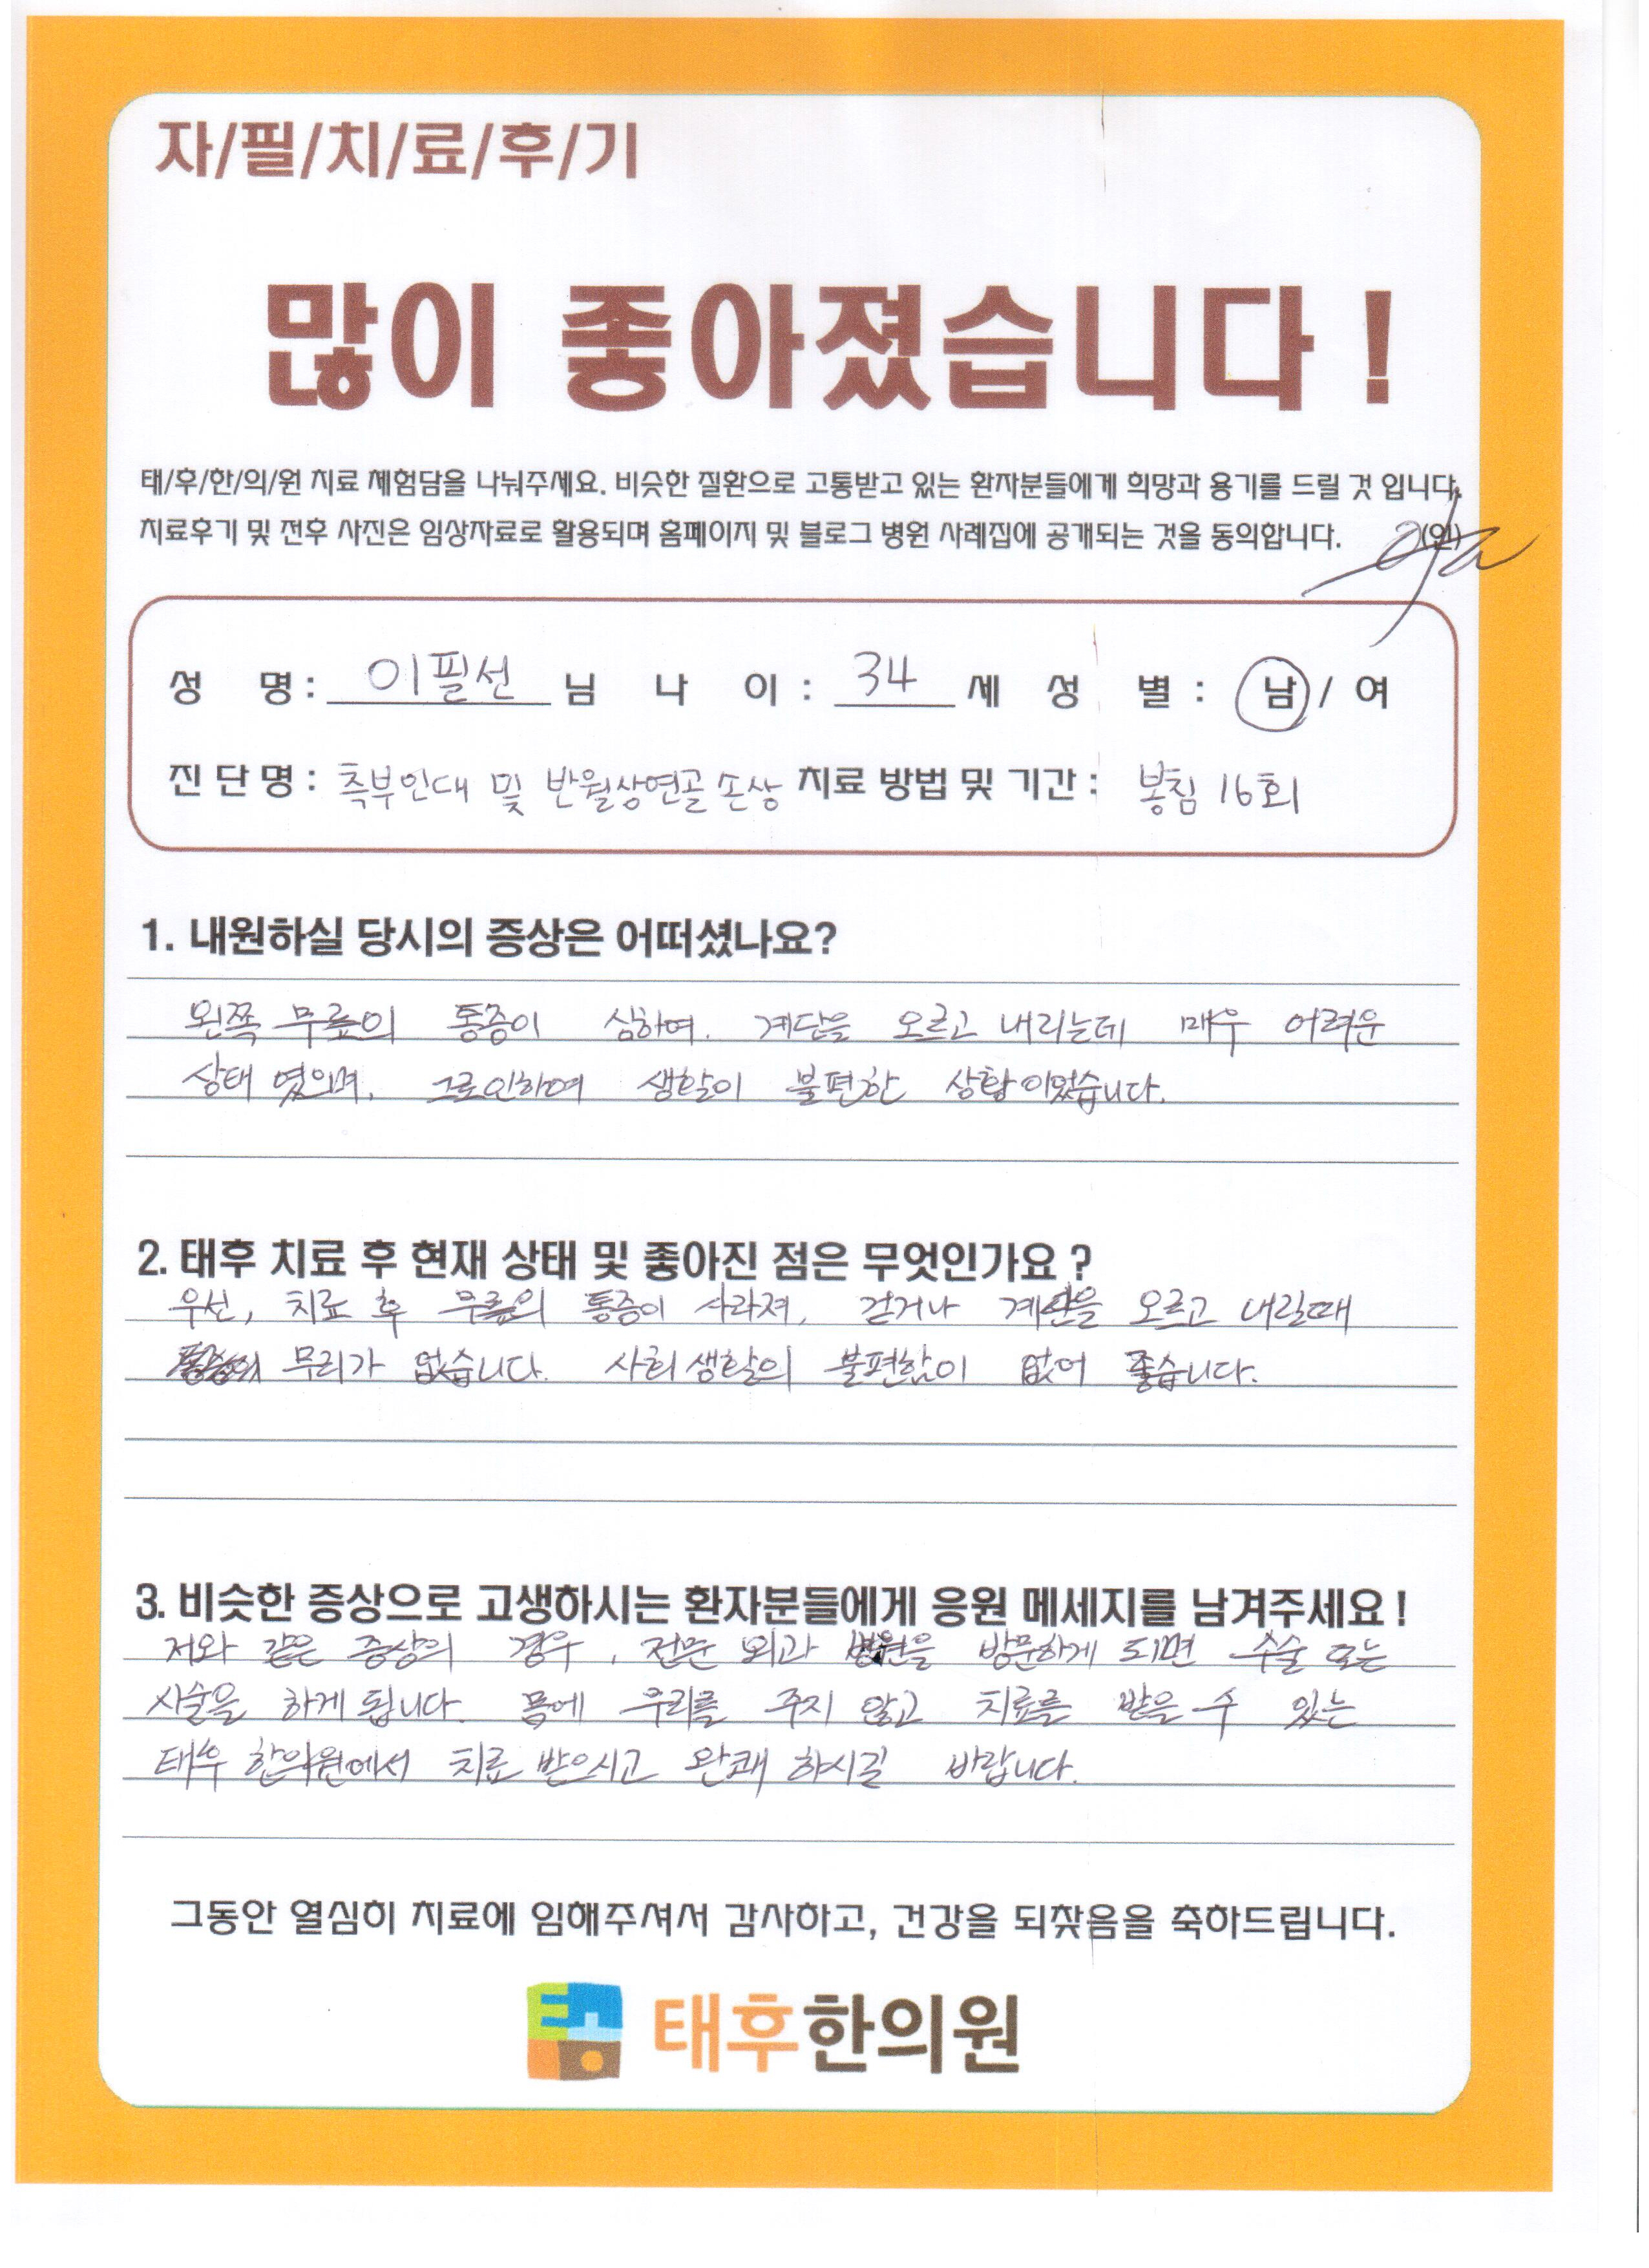 자/필/치/료/후/기
많이 좋아졌습니다 !
태/후/한/의/원 치료 체험담을 나눠주세요. 비슷한 질환으로 고통받고 있는 환자분들에게 희망과 용기를 드릴 것 입니다.
치료후기 및 전후 사진은 임상자료로 활용되며 홈페이지 및 블로그 병원 사례집에 공개되는 것을 동의합니다. (인)
성 명 : 이필선 님 나 이 : 34 세 성 별 : 남 / 여
진 단 명 : 측부인대 및 반월상연골 손상 치료 방법 및 기간 : 봉침 16회
1. 내원하실 당시의 증상은 어떠셨나요?
왼쪽 무릎의 통증이 심하여. 계단을 오르고 내리는데 매우 어려운
상태 였으며, 그로인하여 생활이 불편한 상황이었습니다.
2. 태후 치료 후 현재 상태 및 좋아진 점은 무엇인가요 ?
우선, 치료 후 무릎의 통증이 사라져, 걷거나 계단을 오르고 내릴때
무리가 없습니다. 사회생활의 불편함이 없어 좋습니다.
3. 비슷한 증상으로 고생하시는 환자분들에게 응원 메세지를 남겨주세요 !
저와 같은 증상의 경우, 전문 외과 병원을 방문하게 되면 수술 또는
시술을 하게 됩니다. 몸에 무리를 주지 않고 치료를 받을 수 있는
태후 한의원에서 치료 받으시고 완쾌 하시길 바랍니다.
그동안 열심히 치료에 임해주셔서 감사하고, 건강을 되찾음을 축하드립니다.
태후한의원